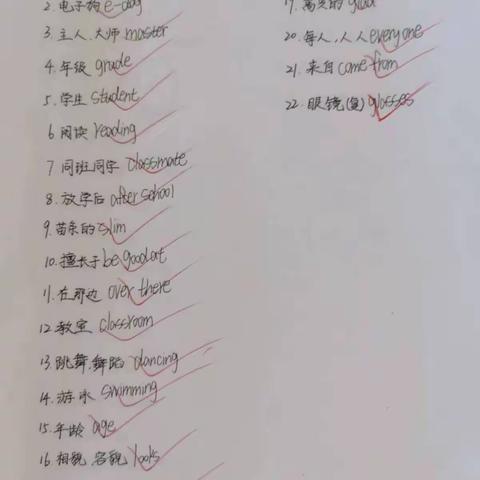 2. 电子狗 e-dog
3. 主人、大师 master
4. 年级 grade
5. 学生 student
6 阅读 reading
7 同班同学 classmate
8. 放学后 after school
9. 苗条的 slim
10. 擅长于 be good at
11. 在那边 over there
12 教室 classroom
13. 跳舞、舞蹈 dancing
14. 游泳 swimming
15. 年龄 age
16. 相貌 容貌 looks
19. 高兴的 glad
20. 每人,人人 everyone
21. 来自 come from
22. 眼镜(复) glasses